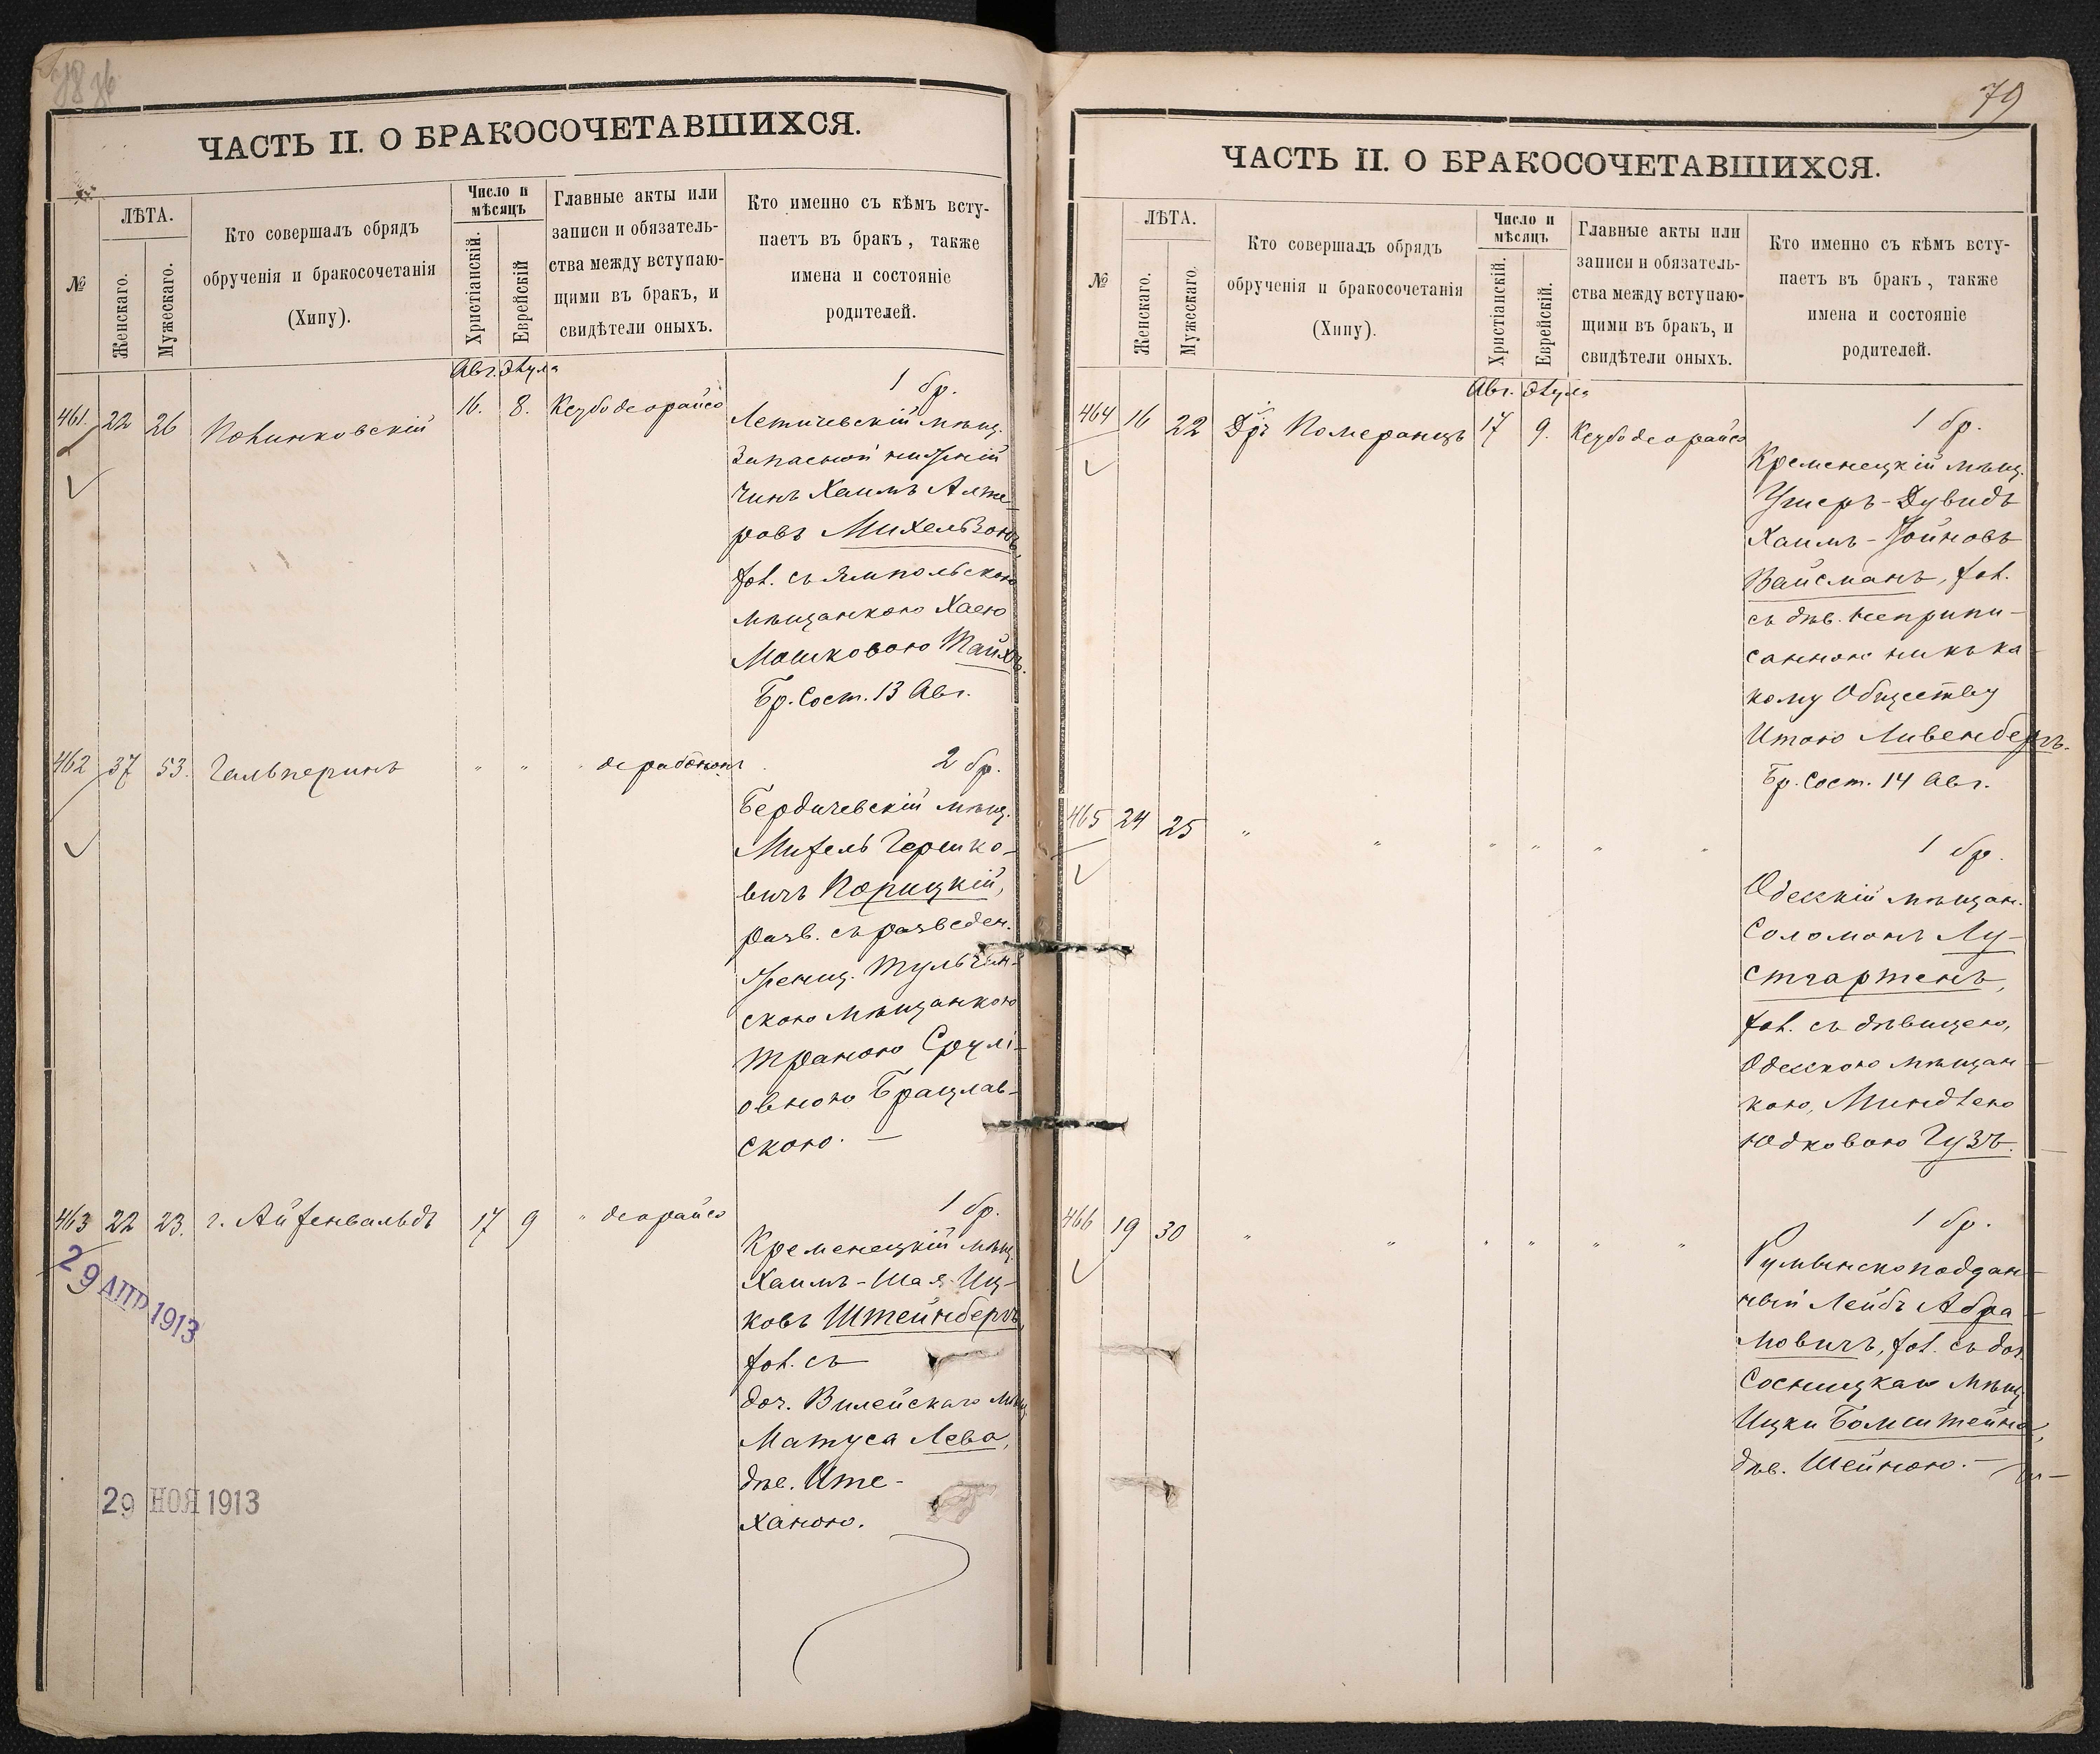 ЧАСТЬ II. О БРАКОСОЧЕТАВШИХСЯ.
№
ЛѢТА.
Женскаго.
Мужескаго.
Кто совершалъ обрядъ
обрученія и бракосочетанія
(Хипу).
Число и
мѣсяцъ
Христіанскій.
Еврейскій
Главные акты или
записи и обязатель-
ства между вступаю-
щими въ бракъ, и
свидѣтели оныхъ.
Кто именно съ кѣмъ всту-
паетъ въ бракъ, также
имена и состояніе
родителей.
Авг. Элула
461. 22 26 16. 8. Ксубо деорайсо 1 бр.
Летичевскій мѣщ.
Запасной нижній
чинъ Хаимъ Алте-
ровъ Михельзонъ,
хол. съ Ямпольскою
мѣщанкою Хаею
Мошковою Тайхъ.
Бр. Сост. 13 Авг.
462 37 53. Гальперинъ " " " дерабононъ 2 бр.
Бердичевскій мѣщ.
Михель Гершко-
вичъ Порицкій,
разв. съ разведен.
женщ. Тульчин-
скою мѣщанкою
Траною Срулі-
овною Брацлав-
скою. —
463 22 23. г. Айзенвальдъ 17 9 " деорайсо 1 бр.
Кременецкій мѣщ.
Хаимъ-Шая Иц-
ковъ Штейнбергъ,
хол. съ
доч. Вилейскаго мѣщ.
Матуса Лева,
дѣв. Ите-
Ханою.
29 АПР 1913
29 НОЯ 1913
79
ЧАСТЬ II. О БРАКОСОЧЕТАВШИХСЯ.
№
ЛѢТА.
Женскаго.
Мужескаго.
Кто совершалъ обрядъ
обрученія и бракосочетанія
(Хипу).
Число и
мѣсяцъ
Христіанскій.
Еврейскій.
Главные акты или
записи и обязатель-
ства между вступаю-
щими въ бракъ, и
свидѣтели оныхъ.
Кто именно съ кѣмъ всту-
паетъ въ бракъ, также
имена и состояніе
родителей.
Авг. Элула
464 16 22 Дръ Померанцъ 17 9. Ксубо деорайсо 1 бр.
Кременецкій мѣщ.
Ушеръ-Дувидъ
Хаимъ-Войновъ
Вайсманъ, хол.
съ дѣв. неприпи-
санною никъка
кому Обществу
Итою Ливенбергъ.
Бр. Сост. 14 Авг.
465 24 25 " " " " " " 1 бр.
Одесскій мѣщан.
Соломонъ Лу-
стгартенъ,
хол. съ дѣвицею,
Одесскою мѣщан-
кою, Миндлею
Юдковою Гузъ.
466 19 30 " " " " " " 1 бр.
Румынскоподдан-
ный Лейбъ Абра-
мовичъ, хол. съ доч.
Сосницкаго мѣщ.
Ицки Бомштейна,
дѣв. Шейною. —